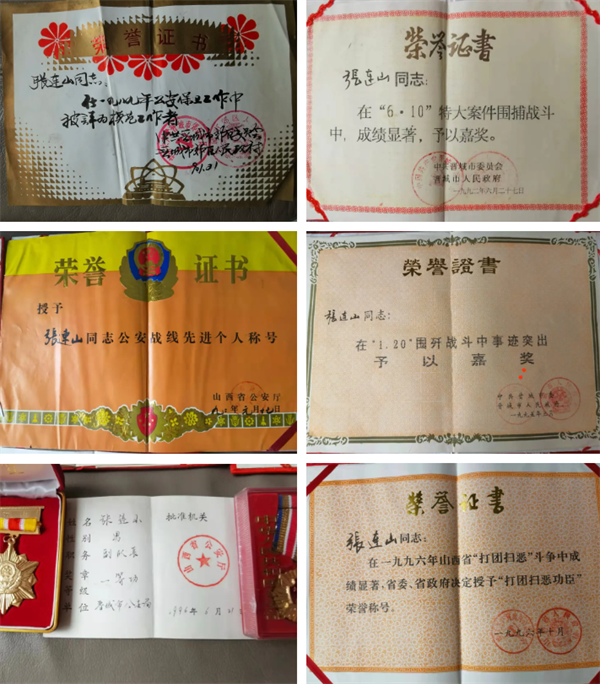 荣誉证书
张连山同志
在一九八九年公安保卫工作中
被评为模范工作者
荣誉证书
张连山同志:
在“6·10”特大案件围捕战斗
中,成绩显著,予以嘉奖。
中共晋城市委员会
晋城市人民政府
一九九二年六月二十七日
荣誉 证书
授予
張连山同志公安战线先进个人称号
山西省公安厅
榮譽證書
張连山同志:
在“1.20”围歼战斗中事迹突出
予以嘉奖
中共晋城市委
晋城市人民政府
姓名 张连山
性别 男
职务 副队长
一等功
单位 晋城市公安局
批准机关
山西省公安厅
1996年6月
荣誉证书
張连山同志:
在一九九六年山西省“打团扫恶”斗争中成
绩显著、省委、省政府决定授予“打团扫恶功臣”
荣誉称号。
一九九六年十月